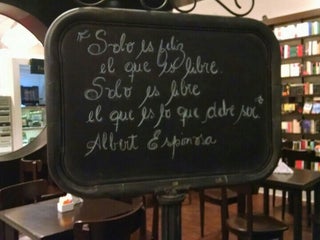 "Solo es feliz
el que es libre.
Solo es libre
el que es lo que debe ser"
Albert Espinosa